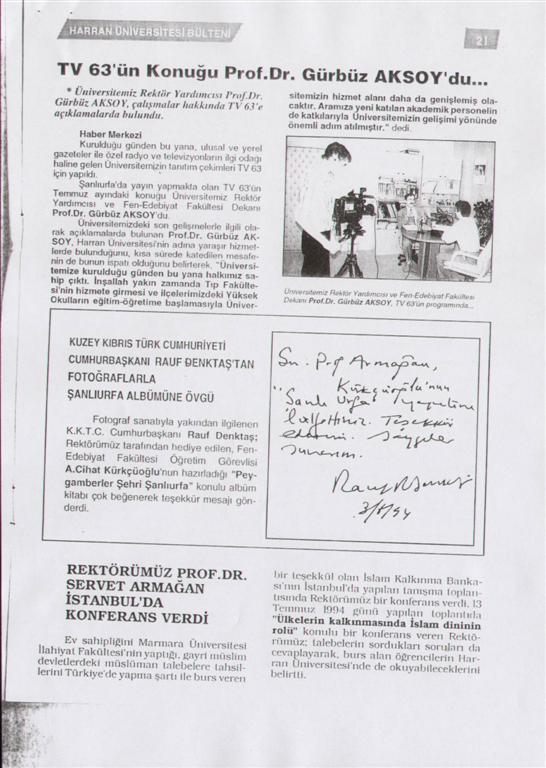 HARRAN ÜNİVERSİTESİ BÜLTENİ
21
TV 63'ün Konuğu Prof.Dr. Gürbüz AKSOY'du...
* Üniversitemiz Rektör Yardımcısı Prof.Dr.
Gürbüz AKSOY, çalışmalar hakkında TV 63'e
açıklamalarda bulundu.
Haber Merkezi
Kurulduğu günden bu yana, ulusal ve yerel
gazeteler ile özel radyo ve televizyonların ilgi odağı
haline gelen Üniversitemizin tanıtım çekimleri TV 63
için yapıldı.
Şanlıurfa'da yayın yapmakta olan TV 63'ün
Temmuz ayındaki konuğu Üniversitemiz Rektör
Yardımcısı ve Fen-Edebiyat Fakültesi Dekanı
Prof.Dr. Gürbüz AKSOY'du.
Üniversitemizdeki son gelişmelerle ilgili ola-
rak açıklamalarda bulunan Prof.Dr. Gürbüz AK-
SOY, Harran Üniversitesi'nin adına yaraşır hizmet-
lerde bulunduğunu, kısa sürede katedilen mesafe-
nin de bunun ispatı olduğunu belirterek, "Üniversi-
temize kurulduğu günden bu yana halkımız sa-
hip çıktı. İnşallah yakın zamanda Tıp Fakülte-
si'nin hizmete girmesi ve ilçelerimizdeki Yüksek
Okulların eğitim-öğretime başlamasıyla Üniver-
sitemizin hizmet alanı daha da genişlemiş ola-
caktır. Aramıza yeni katılan akademik personelin
de katkılarıyla Üniversitemizin gelişimi yönünde
önemli adım atılmıştır." dedi.
Üniversitemiz Rektör Yardımcısı ve Fen-Edebiyat Fakültesi
Dekanı Prof.Dr. Gürbüz AKSOY, TV 63'ün programında...
KUZEY KIBRIS TÜRK CUMHURİYETİ
CUMHURBAŞKANI RAUF DENKTAŞ'TAN
FOTOĞRAFLARLA
ŞANLIURFA ALBÜMÜNE ÖVGÜ
Fotoğraf sanatıyla yakından ilgilenen
K.K.T.C. Cumhurbaşkanı Rauf Denktaş;
Rektörümüz tarafından hediye edilen, Fen-
Edebiyat Fakültesi Öğretim Görevlisi
A.Cihat Kürkçüoğlu'nun hazırladığı "Pey-
gamberler Şehri Şanlıurfa" konulu albüm
kitabı çok beğenerek teşekkür mesajı gön-
derdi.
Sn. Prof Armağan,
Kürkçüoğlu'nun
"Şanlı Urfa"
Teşekkür
ederim. Saygılar
sunarım.
3/8/94
REKTÖRÜMÜZ PROF.DR.
SERVET ARMAĞAN
İSTANBUL'DA
KONFERANS VERDİ
Ev sahipliğini Marmara Üniversitesi
İlahiyat Fakültesi'nin yaptığı, gayri müslim
devletlerdeki müslüman talebelere tahsil-
lerini Türkiye'de yapma şartı ile burs veren
bir teşekkül olan İslam Kalkınma Banka-
sı'nın İstanbul'da yapılan tanışma toplan-
tısında Rektörümüz bir konferans verdi. 13
Temmuz 1994 günü yapılan toplantıda
"Ülkelerin kalkınmasında İslam dininin
rolü" konulu bir konferans veren Rektö-
rümüz; talebelerin sordukları soruları da
cevaplayarak, burs alan öğrencilerin Har-
ran Üniversitesi'nde de okuyabileceklerini
belirtti.